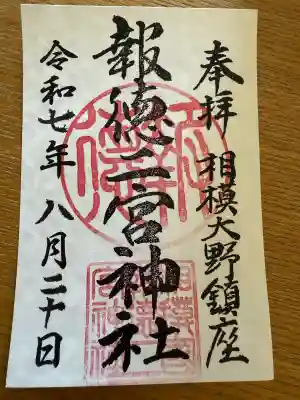 奉拝 相模大野鎮座
報徳二宮神社
令和七年 八月二十日